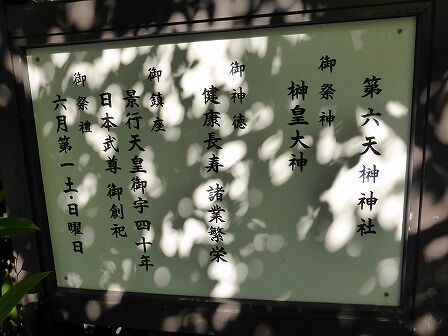 第六天榊神社
御祭神
榊皇大神
御神徳
健康長寿 諸業繁栄
御鎮座
景行天皇御宇四十年
日本武尊 御創祀
御祭禮
六月第一 土・日曜日